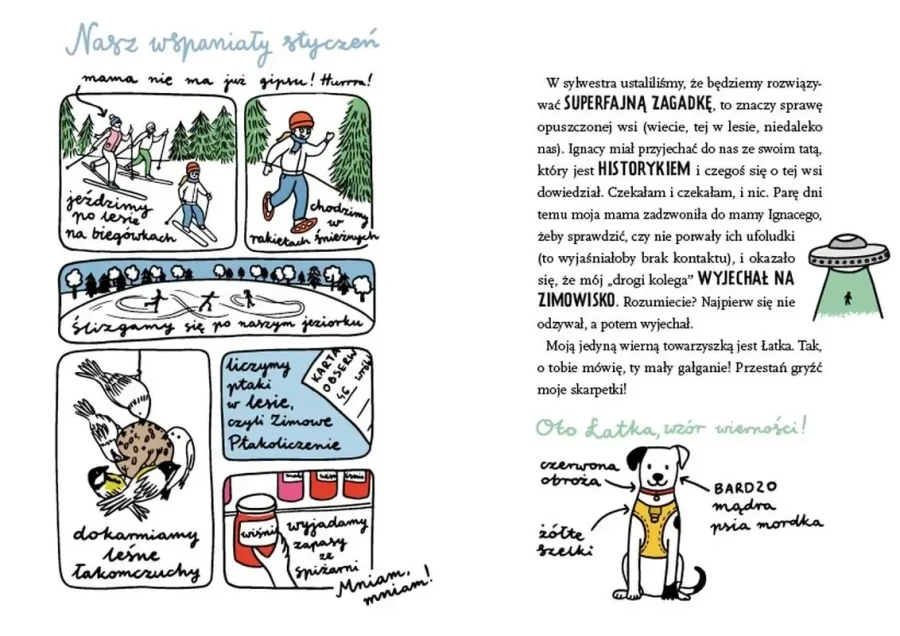 Nasz wspaniały styczeń
mama nie ma już gipsu! Hurra!
jeździmy
po lesie
na biegówkach
chodzimy
w
rakietach śnieżnych
ślizgamy się po naszym jeziorku
dokarmiamy
leśne
łakomczuchy
liczymy
ptaki
w lesie,
czyli Zimowe
Ptakoliczenie
KARTA
OBSERW
46 wrób
wiśni
wyjadamy
zapasy
ze
spiżarni
Mniam,
mniam!
W sylwestra ustaliliśmy, że będziemy rozwiązy-
wać SUPERFAJNĄ ZAGADKĘ, to znaczy sprawę
opuszczonej wsi (wiecie, tej w lesie, niedaleko
nas). Ignacy miał przyjechać do nas ze swoim tatą,
który jest HISTORYKIEM i czegoś się o tej wsi
dowiedział. Czekałam i czekałam, i nic. Parę dni
temu moja mama zadzwoniła do mamy Ignacego,
żeby sprawdzić, czy nie porwały ich ufoludki
(to wyjaśniałoby brak kontaktu), i okazało
się, że mój „drogi kolega” WYJECHAŁ NA
ZIMOWISKO. Rozumiecie? Najpierw się nie
odzywał, a potem wyjechał.
Moją jedyną wierną towarzyszką jest Łatka. Tak,
o tobie mówię, ty mały gałganie! Przestań gryźć
moje skarpetki!
Oto Łatka, wzór wierności!
czerwona
obroża
żółte
szelki
BARDZO
mądra
psia mordka